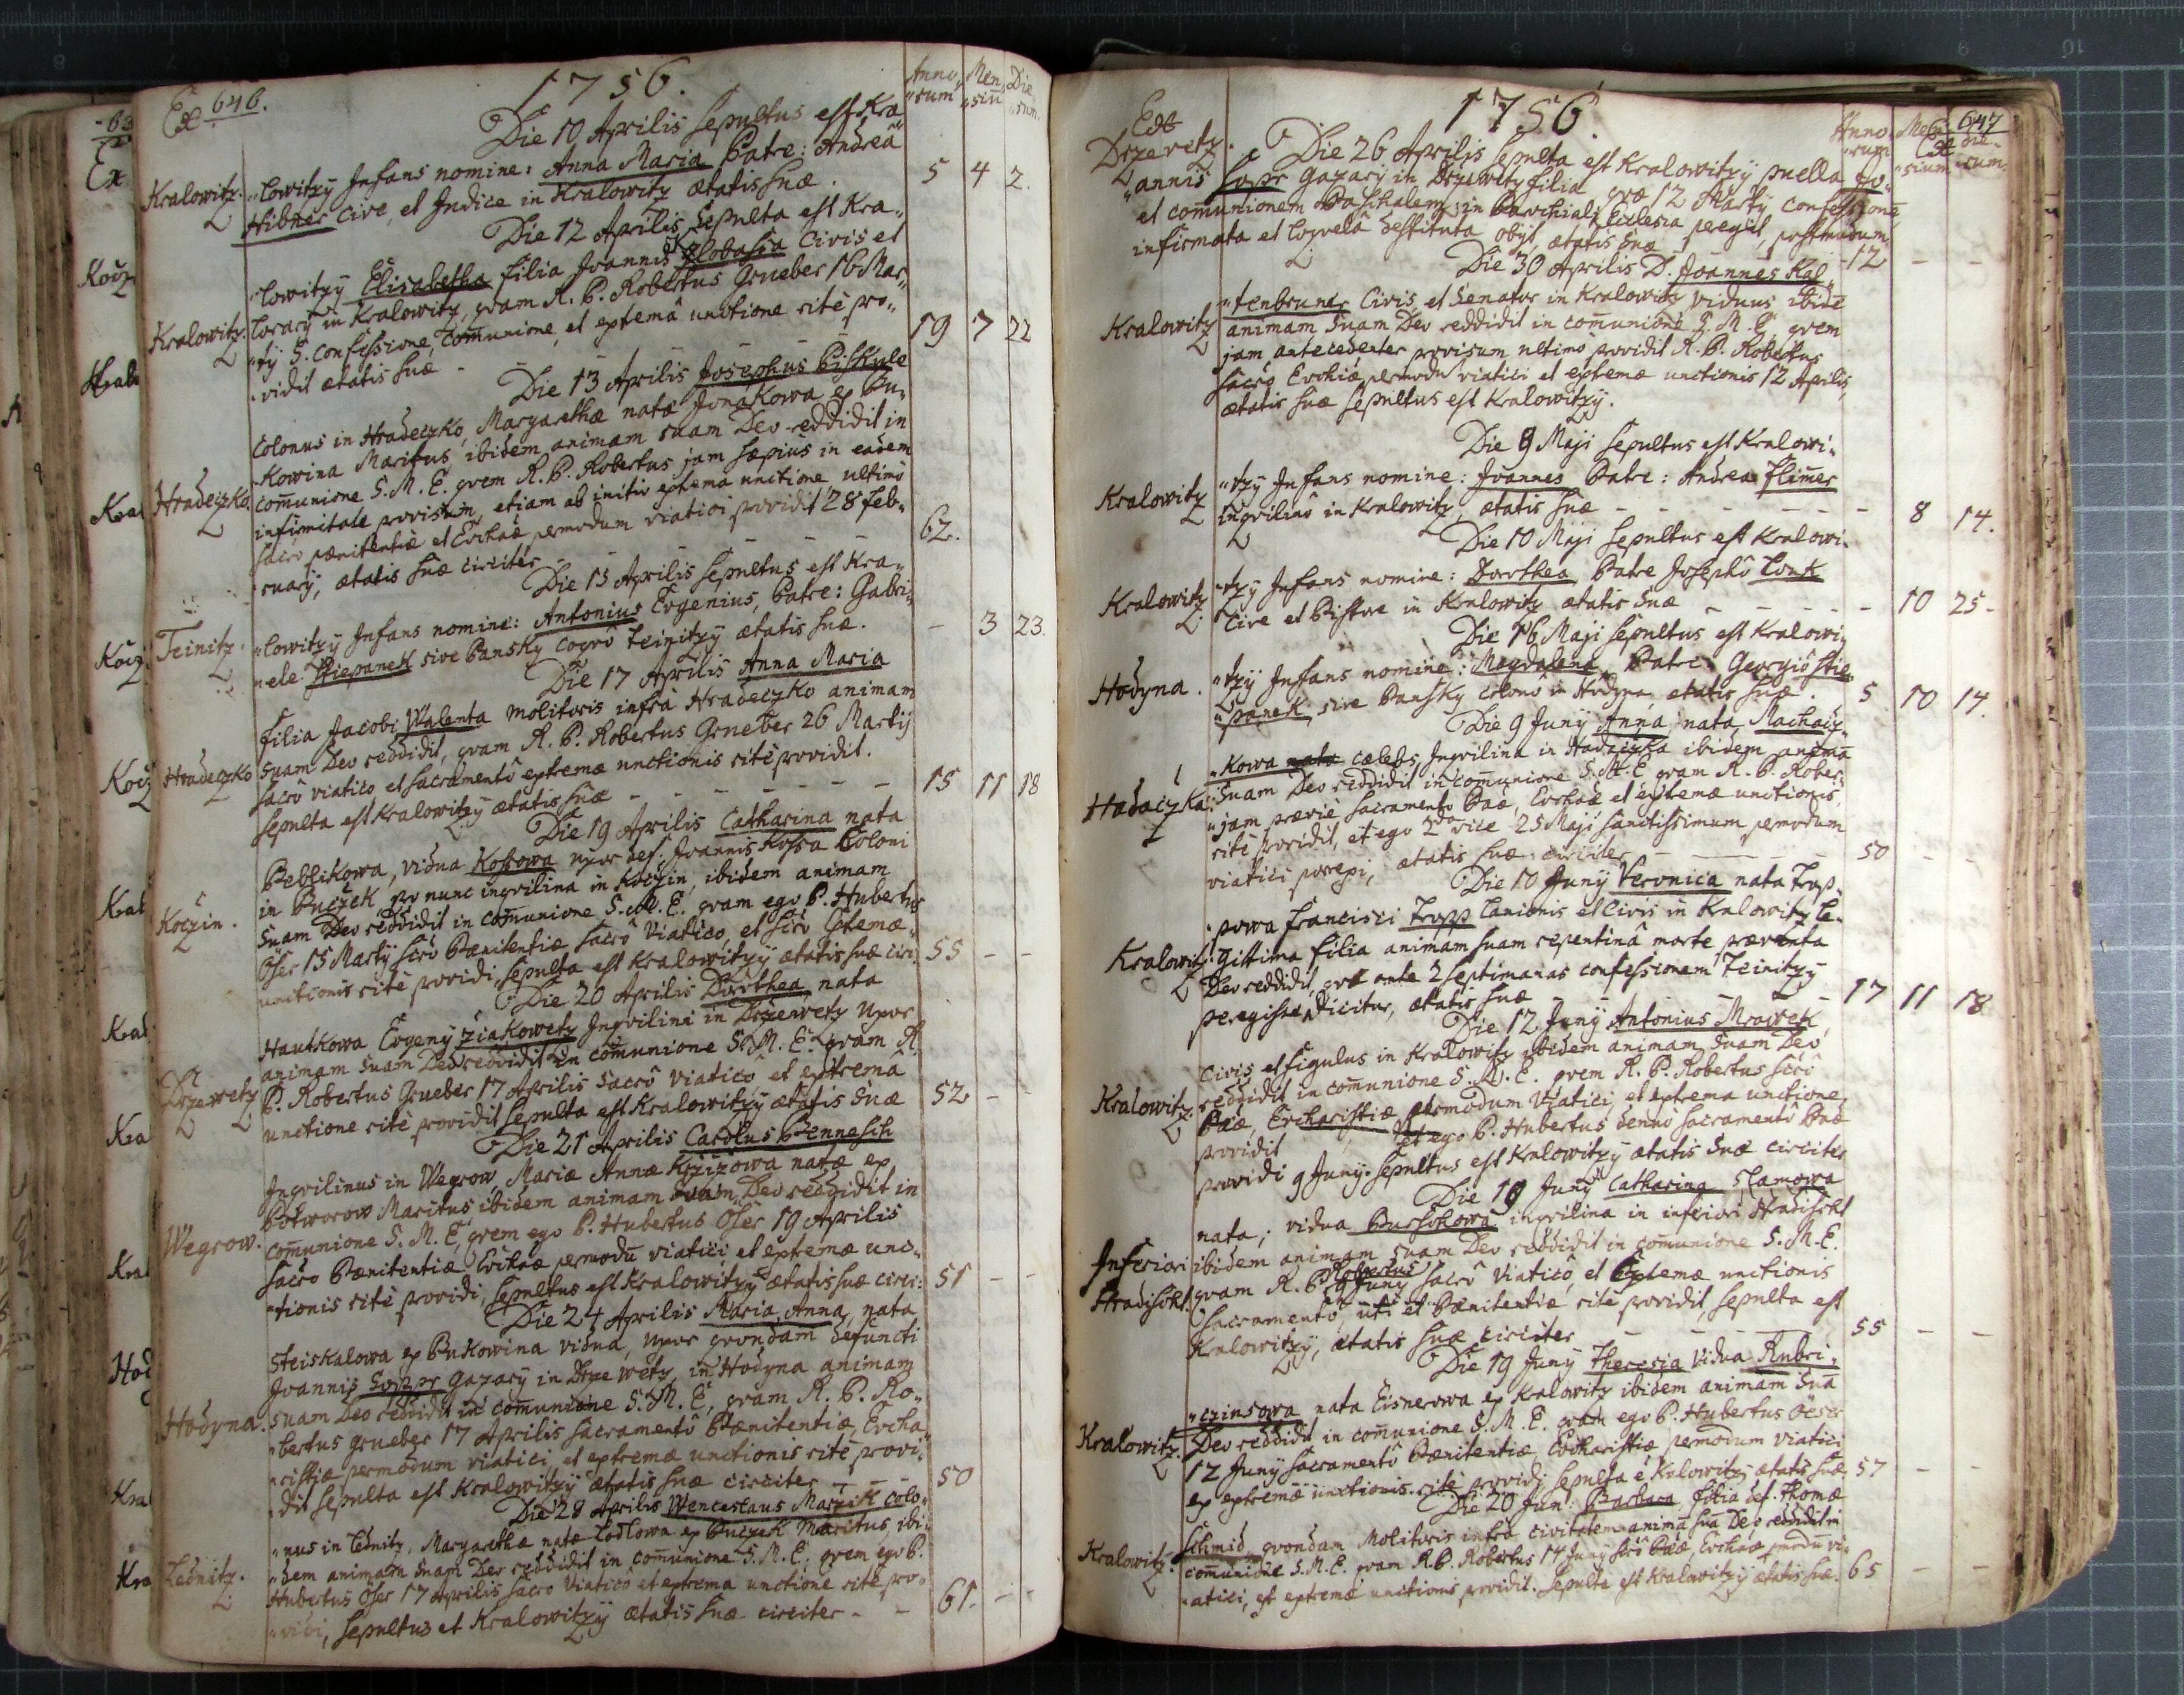 Ex 646.
1756.
Anno„ Men„ Die„
„rum „siu „rum.
Die 10 Aprilis sepultus est Kra„
Kralowitz. „lowitzÿ Infans nomine: Anna Maria Patre: Andrea 5 4 2.
Hibner Cive, et Judice in Kralowitz ætatis suæ.
Die 12 Aprilis Sepulta est Kra„
„lowitzÿ Elisabetha filia Joannis Civis et
Kralowitz. in Kralowitz, quam R. P. Robertus Grueber 16 Mar„
„tÿ S. Confessione, Comunione, et extremâ unctione ritè pro„ 19 7 22
„vidit ætatis suæ -
Die 13 Aprilis Josephus Piskule
Colonus in Hradeczko, Margarethæ natæ Jonakowa ex Bu„
„Kowina Maritus ibidem animam suam Deo reddidit in
Hradeczko. comunione S. M. E. quem R. P. Robertus jam sæpius in eadem
infirmitate provisum, etiam ab initio extrema unctione, ultimò
sacrô pænitentiæ et Euchaæ permodum viatici providit 28 Feb„
„ruarÿ, ætatis suæ circiter - - - - 62.
Die 15 Aprilis sepultus est Kra„
Teinitz. „lowitzÿ Infans nomine: Antonius Eugenius, Patre: Gabri„ - 3 23.
„ele Stiepanek sive Pansky coquo Teinitzÿ ætatis suæ.
Die 17 Aprilis Anna Maria
filia Jacobi Walenta Molitoris infrà Hradeczko animam
Hradeczko suam Deo reddidit, quam R. P. Robertus Grueber 26 Martÿ
sacrô viatico et sacramentô extremæ unctionis ritè providit.
sepulta est Kralowitzÿ ætatis suæ - - - - - 15 11 18
Die 19 Aprilis Catharina nata
Peblikowa, vidua Kossowa uxor def: Joannis Kossa Coloni
in Buczek pro nunc inquilina in Koczin, ibidem animam
Koczin. suam Deo reddidit in comunione S. M. E. quam ego P. Hubertus
Öser 15 Martÿ sacrô Pænitentiæ sacrô viatico, et sacrô Extremæ
unctionis ritè providi, sepulta est Kralowitzÿ ætatis suæ circi. 55 - -
Die 20 Aprilis Dorothea nata
Hautkowa Eugenÿ Ziakowetz Inquilini in Drzewetz uxor
animam suam Deo reddidit in comunione S. M. E. quam R.
Drzewetz P. Robertus Grueber 17 Aprilis Sacrô viaticô, et extremâ
unctione ritè providit sepulta est Kralowitzÿ ætatis suæ 52 - -
Die 21 Aprilis Carolus Pennesch
Inquilinus in Wegrow, Mariæ Annæ Krzizowa natæ ex
Potworow Maritus ibidem animam suam Deo reddidit in
Wegrow. comunione S. M. E. quem ego P. Hubertus Öser 19 Aprilis
sacrô Pænitentiæ Euchaæ permodu viatici et extremæ unc„
„tionis ritè providi, sepultus est Kralowitzÿ ætatis suæ circi: 51 - -
Die 24 Aprilis Maria Anna, nata
Steiskalowa ex Bukowina vidua, uxor quondam defuncti
Joannis Soppr Gazarÿ in Drzewetz, in Hodyna animam
Hodyna. suam Deo reddidit in comunione S. M. E, quam R. P. Ro„
„bertus Grueber 17 Aprilis sacramentô Pænitentiæ, Eucha„
„ristiæ permodum viatici, et extremæ unctionis ritè provi„
„dit sepulta est Kralowitzÿ ætatis suæ circiter - - - 50
Die 28 Aprilis Wenceslaus Marzik Colo„
„nus in Lednitz, Margarethæ natæ Lodlowa ex Buczek Maritus, ibi„
Lednitz. „dem animam suam Deo reddidit in comunione S. M. E. quem ego P.
Hubertus Öser 17 Aprilis sacro Viaticô et extrema unctione ritè pro„
„vidi, sepultus et Kralowitzÿ ætatis suæ circiter - - 61. - -
Ext
1756.
Anno„ Men„ 647
„rum „sium Die„ „rum.
Drzewetz. Die 26 Aprilis sepulta est Kralowitzÿ puella Jo„
„annis Soppr Gazarÿ in Drzewetz filia quæ 12 Martÿ confessionē,
et comunionem Paschalem in Parchiali Ecclesia peregit, postmodum
infirmata et loquelâ destituta obÿt, ætatis suæ - 12 - -
Die 30 Aprilis D. Joannes Kal„
„tenbruner Civis, et Senator in Kralowitz viduus ibidē
Kralowitz animam suam Deo reddidit in comunione S. M. E, quem
jam antecedenter provisum ultimo providit R. P. Robertus
sacrô Euchiæ permodu viatici et extremæ unctionis 12 Aprilis,
ætatis suæ sepultus est Kralowitzÿ.
Die 9 Maji sepultus est Kralowi„
Kralowitz „tzÿ Infans nomine: Joannes Patre: Andrea Flimer
inquilinô in Kralowitz ætatis suæ - - - - - - 8 14.
Die 10 Maji sepultus est Kralowi„
Kralowitz „tzÿ Infans nomine: Dorothea Patre Josephô Tonk
Cive et Pistore in Kralowitz ætatis suæ - - - - - 10 25 -
Die 16 Maji sepultus est Kralowi„
Hodyna. „tzÿ Infans nomine: Magdalena, Patre Georgiô Stie„
„panek sive Pansky colonô in Hodyna, ætatis suæ. 5 10 14.
Die 9 Junÿ Anna nata Machacz„
„Kowa nata cælebs, Inquilina in Hadaczka ibidem anima
Hadaczka: suam Deo reddidit in comunione S. M. E quam R. P. Rober:
„jam præviè sacramento Pææ, Euchaæ et extremæ unctionis,
ritè providit, et ego 2dâ vice 25 Maji sanctissimum permodum
viatici porrexi, ætatis suæ circiter - - - 50 - -
Die 10 Junÿ Veronica nata Trop„
„powa Francisci Tropp Lanionis et Civis in Kralowitz le„
Kralowitz. „gittima filia animam suam repentinâ morte præventa
Deo reddidit, quæ ante 2 septimanas confessionem Teinitzÿ
peregisse dicitur, ætatis suæ - - - - 17 11 18
Die 12 Junÿ Antonius Mrawek,
Civis et figulus in Kralowitz ibidem animam suam Deo
Kralowitz. reddidit in comunione S. M. E. quem R. P. Robertus sacrô
Pææ, Eucharistiæ permodum Viatici, et extrema unctione
providit et ego P. Hubertus denuò sacramentô Pææ
providi 9 Junÿ. sepultus est Kralowitzÿ ætatis suæ circiter
Die 19 Junÿ Catharina Slamowa
nata, vidua Burschowa inquilina in inferiori Hradischt
Inferiori ibidem animam suam Deo reddidit in comunione S. M. E.
Hradischt. quam R. P. Robertus 9 Junÿ sacrô Viaticô, et Extemæ unctionis
sacramentô, uti et Pænitentiæ ritè providit, sepulta est
Kralowitzÿ, ætatis suæ circiter - - - - 55 - -
Die 19 Junÿ Theresia Vidua Rubri„
„czinsowa nata Eisnerowa ex Kralowitz ibidem animam suā
Kralowitz. Deo reddidit in comunione S. M. E. quam ego P. Hubertus Oeser
12 Junÿ sacramentô Pænitentiæ Eucharistiæ permodum viatici
ex extremæ unctionis ritè providi sepulta ē Kralowitzÿ ætatis suæ 57 - -
Die 20 Jun: Barbara filia def. Thomæ
Schmid quondam Molitoris infrà civitatem animā suā Deo reddidit in
Kralowitz. comunione S. M. E. quam R. P. Robertus 14 Junÿ sacrô Pææ, Euchaæ pmodu vi„
„atici, et extremæ unctionis providit. sepulta est Kralowitzÿ ætatis suæ. 65 - -